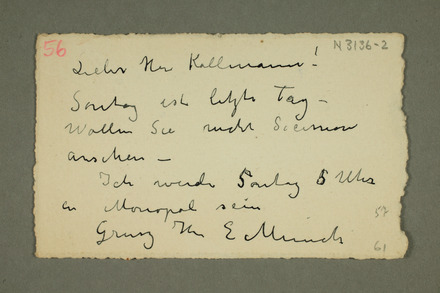 56
N 3136-2
Lieber Herr Kollmann!
Sontag ist letzte Tag –
Wollen Sie nicht
ansehen –
Ich werde Sontag 5 Uhr
en Monopol sein
Gruss Ihr E Munch
57
61